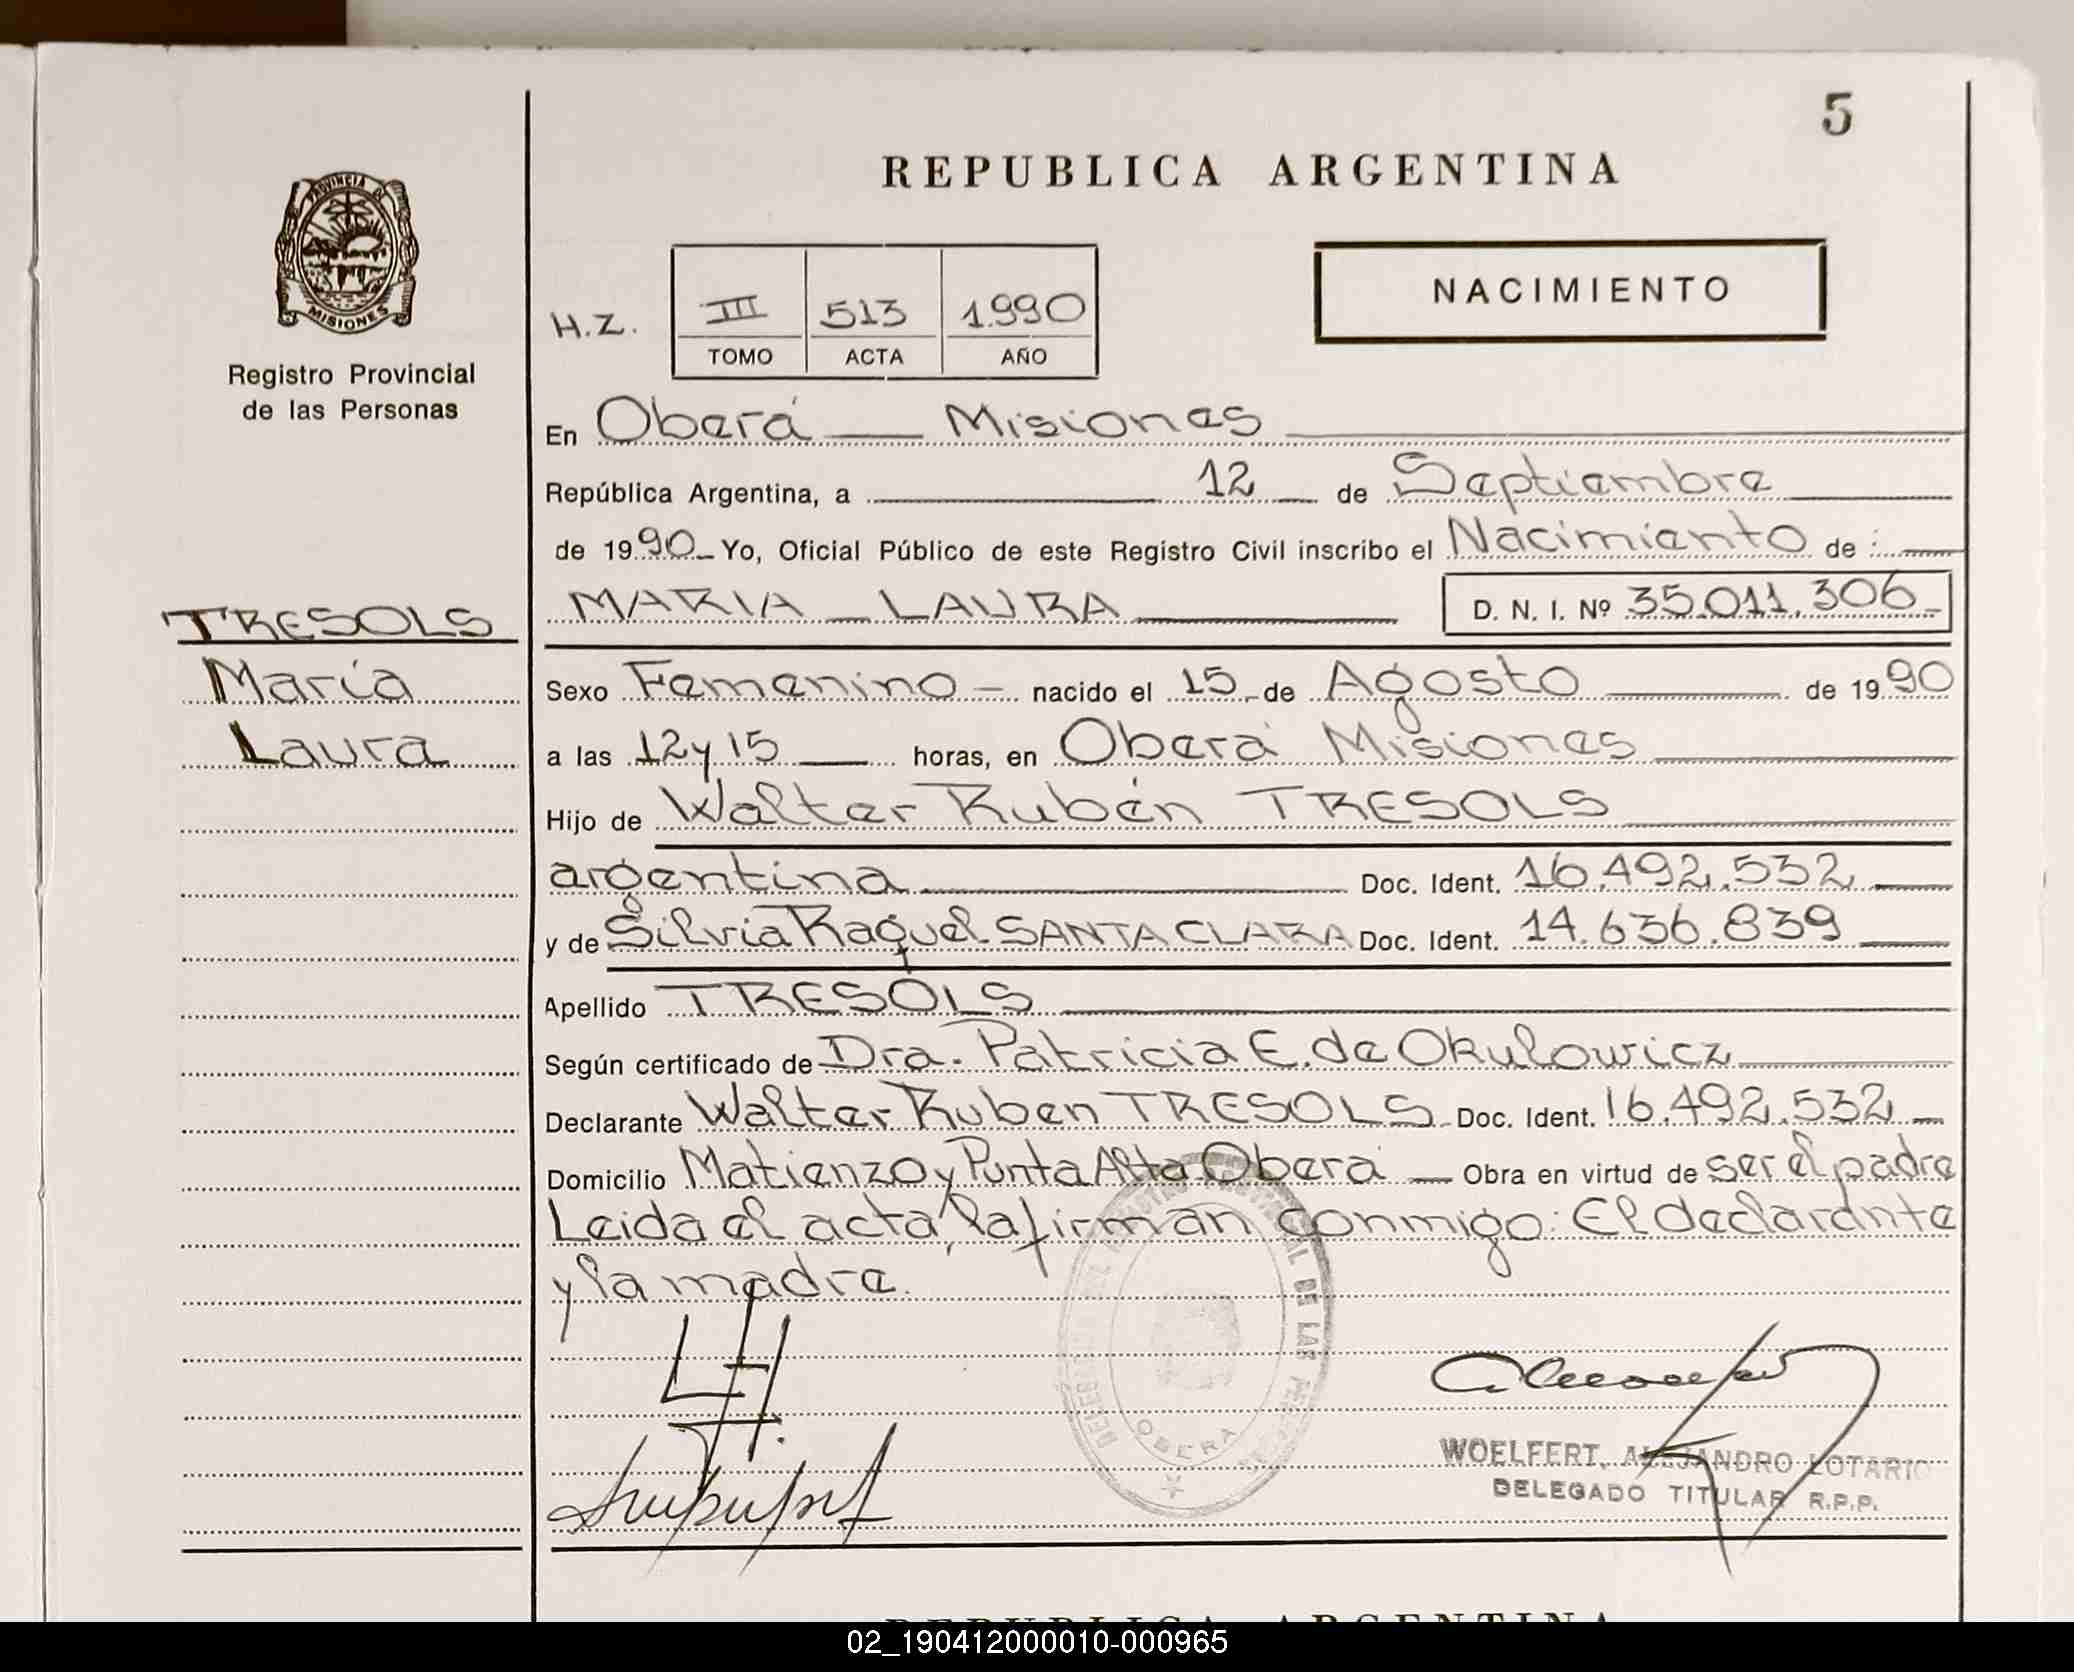 5
REPUBLICA ARGENTINA
PROVINCIA DE
MISIONES
Registro Provincial
de las Personas
NACIMIENTO
H.Z. III 513 1.990
TOMO ACTA AÑO
En Oberá — Misiones
República Argentina, a 12 de Septiembre
de 1990 Yo, Oficial Público de este Registro Civil inscribo el Nacimiento de:
MARIA LAURA D. N. I. Nº 35.011.306
TRESOLS
María
Laura
Sexo Femenino - nacido el 15 de Agosto de 1990
a las 12 y 15 horas, en Oberá Misiones
Hijo de Walter Rubén TRESOLS
argentina Doc. Ident. 16.492.532
y de Silvia Raquel SANTA CLARA Doc. Ident. 14.636.839
Apellido TRESOLS
Según certificado de Dra. Patricia E. de Okulowicz
Declarante Walter Ruben TRESOLS Doc. Ident. 16.492.532
Domicilio Matienzo y Punta Alta Oberá — Obra en virtud de ser el padre
Leida el acta, la firman conmigo: El declarante
y la madre.
DE LAS
OBERA
WOELFERT, ALEJANDRO LOTARIO
DELEGADO TITULAR R.P.P.
REPUBLICA ARGENTINA
02_190412000010-000965